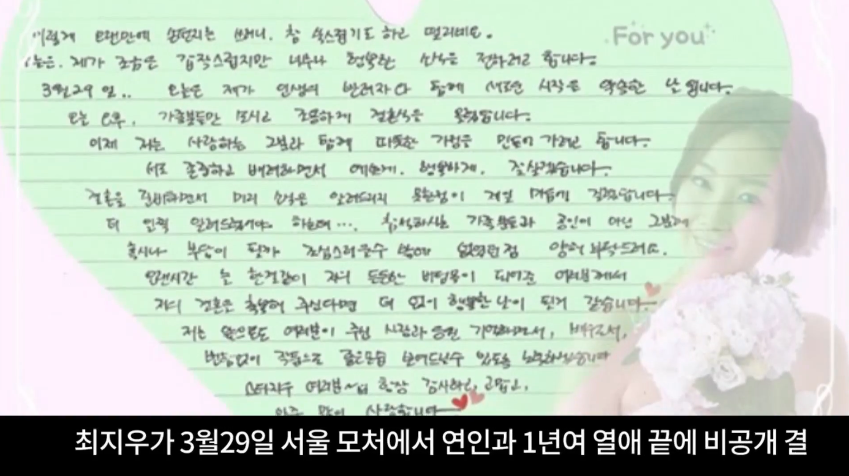 이렇게 오랜만에 손편지를 쓰려니, 참 쑥스럽기도 하고 떨리네요.
For you
오늘은, 제가 조금은 갑작스럽지만 너무나 행복한 소식을 전하려고 합니다.
3월 29일.. 오늘은 제가 인생의 반려자와 함께 새로운 시작을 약속한 날입니다.
오늘 오후, 가족분들만 모시고 조용하게 결혼식을 올렸습니다.
이제 저는 사랑하는 그분과 함께 따뜻한 가정을 만들어 가려고 합니다.
서로 존중하고 배려하면서 예쁘게, 행복하게, 잘 살겠습니다.
결혼을 준비하면서 미리 소식을 알려드리지 못한점이 제일 마음에 걸렸습니다.
더 일찍 알려드렸어야 하는데…, 참석하시는 가족분들과 공인이 아닌 그분께
혹시나 부담이 될까 조심스러울수 밖에 없었던점 양해 부탁드려요.
오랜시간 늘 한결같이 저의 든든한 버팀목이 되어준 여러분께서
저의 결혼을 축복해 주신다면 더 없이 행복한 날이 될거 같습니다.
저는 앞으로도 여러분이 주신 사랑과 응원 기억하면서, 배우로서,
변함없이 작품으로 좋은모습 보여드릴수 있도록 노력하겠습니다
스타지우 여러분~ 항상 감사하고, 고맙고,
아주 많이 사랑합니다
최지우가 3월29일 서울 모처에서 연인과 1년여 열애 끝에 비공개 결